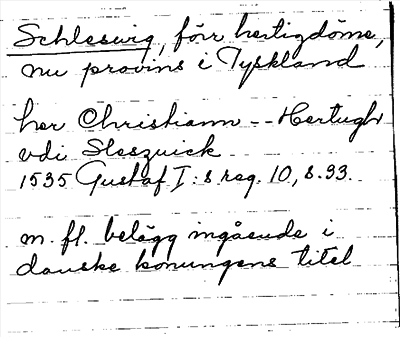 Schleswig, förr hertigdöme,
nu provins i Tyskland
her Christiann -- Hertugh
vdi Sleszuick
1535 Gustaf I:s reg. 10, s. 93.
m. fl. belägg ingående i
danske konungens titel